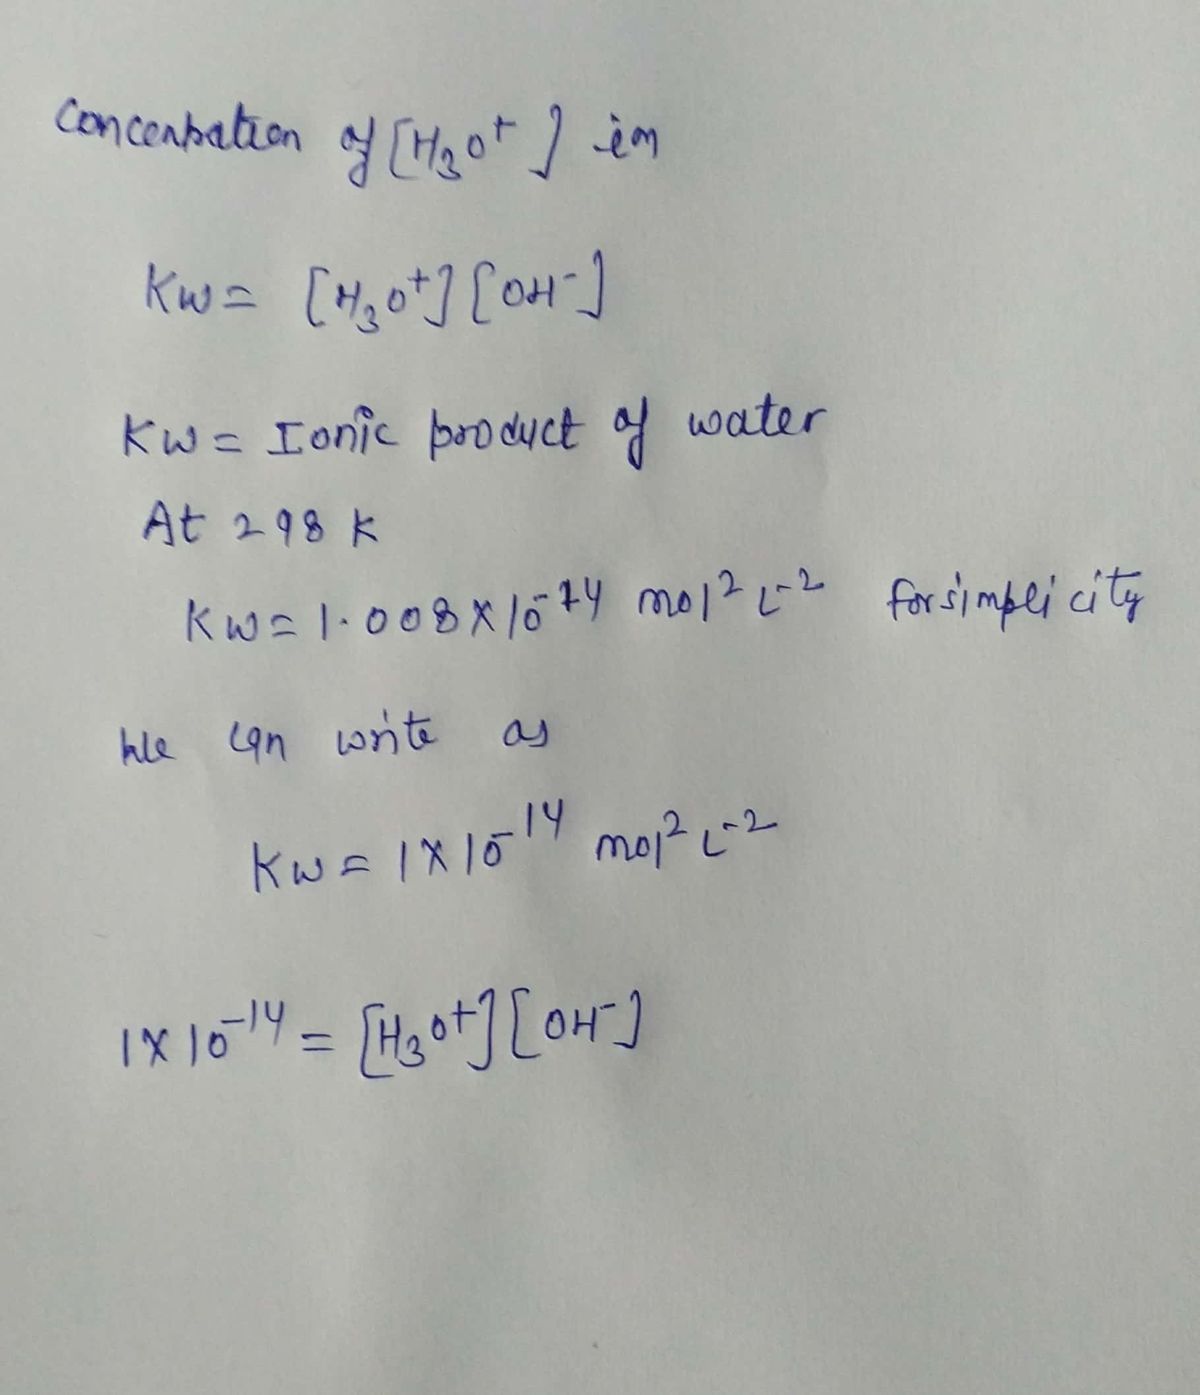 Concentration of [H₃O⁺] in
Kw = [H₃O⁺][OH⁻]
Kw = Ionic product of water
At 298 K
Kw = 1.008 × 10⁻¹⁴ mol² L⁻² for simplicity
We can write as
Kw = 1 × 10⁻¹⁴ mol² L⁻²
1 × 10⁻¹⁴ = [H₃O⁺][OH⁻]